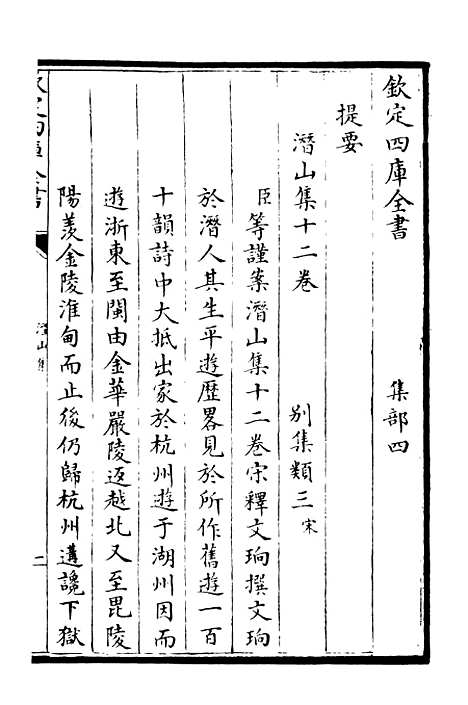 欽定四庫全書 集部四
提要
潛山集十二卷 別集類三宋
臣等謹案潛山集十二卷宋釋文珦撰文珦
於潛人其生平遊歷畧見於所作舊遊一百
十韻詩中大抵出家於杭州遊于湖州因而
遊浙東至閩由金華嚴陵返越北又至毘陵
陽羨金陵淮甸而止後仍歸杭州遘讒下獄
欽定四庫全書
潛山集